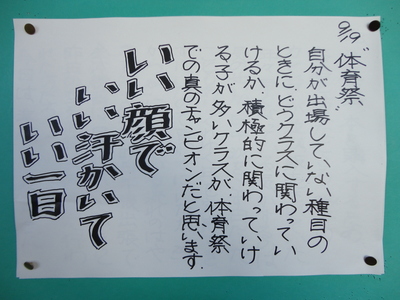 9/19 "体育祭"
自分が出場していない種目の
ときに、どうクラスに関わってい
けるか、積極的に関わっていけ
る子が多いクラスが、体育祭
での真のチャンピオンだと思います.
いい顔で
いい汗かいて
いい一日